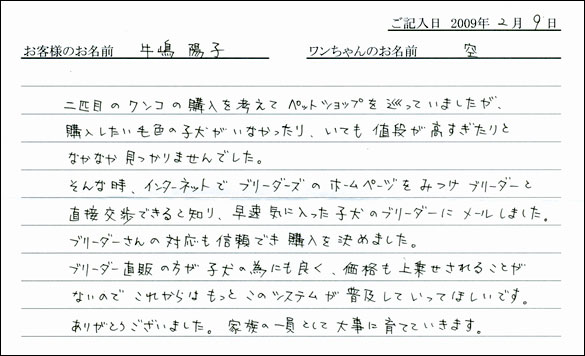 ご記入日 2009年 2月 9日
お客様のお名前 牛嶋 陽子 ワンちゃんのお名前 空
二匹目のワンコの購入を考えてペットショップを巡っていましたが、
購入したい毛色の子犬がいなかったり、いても値段が高すぎたりと
なかなか見つかりませんでした。
そんな時、インターネットでブリーダーズのホームページをみつけブリーダーと
直接交渉できると知り、早速気に入った子犬のブリーダーにメールしました。
ブリーダーさんの対応も信頼でき購入を決めました。
ブリーダー直販の方が子犬の為にも良く、価格も上乗せされることが
ないのでこれからはもっとこのシステムが普及していってほしいです。
ありがとうございました。家族の一員として大事に育てていきます。